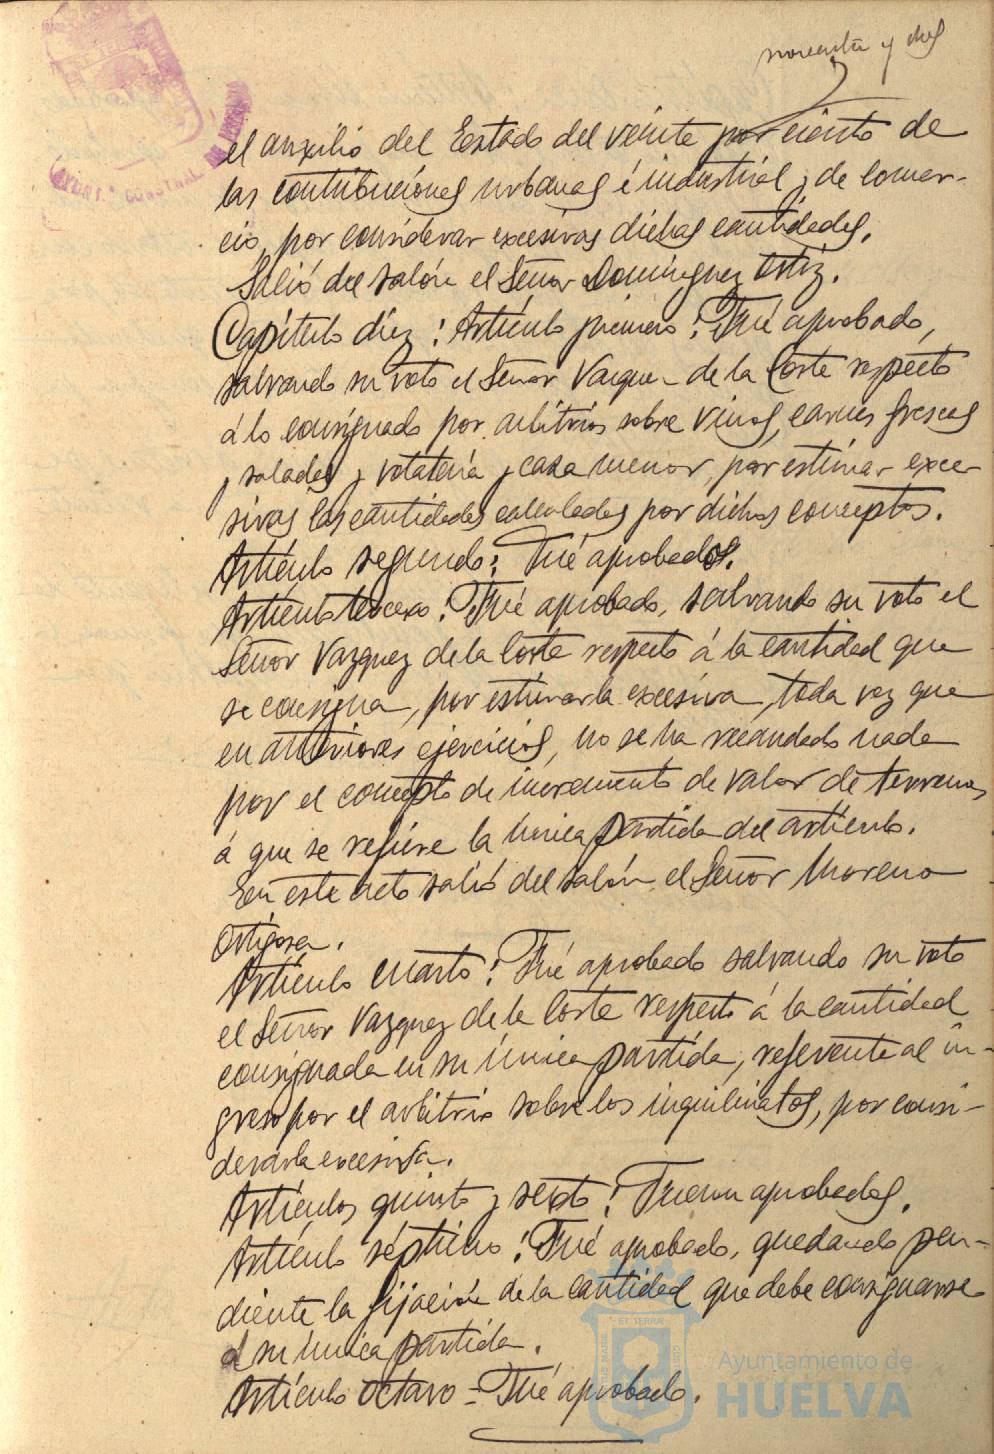 noventa y dos
el auxilio del Estado del veinte por ciento de
las contribuciones urbanas é industrial y de comer-
cio, por considerar excesivas dichas cantidades.
Salió del salón el Señor Dominguez Ortiz.
Capítulo diez: Artículo primero: Fué aprobado,
salvando su voto el Señor Vazquez de la Corte respecto
á lo consignado por arbitrios sobre vinos, carnes frescas
y saladas y volatería y caza menor, por estimar exce-
sivas las cantidades calculadas por dichos conceptos.
Artículo segundo: Fué aprobado.
Artículo tercero: Fué aprobado, salvando su voto el
Señor Vazquez de la Corte respecto á la cantidad que
se consigna, por estimarla excesiva, toda vez que
en anteriores ejercicios, no se ha recaudado nada
por el concepto de incremento de valor de terrenos
á que se refiere la única partida del artículo.
En este acto salió del salón el Señor Moreno
Ortigosa.
Artículo cuarto: Fué aprobado salvando su voto
el Señor Vazquez de la Corte respecto á la cantidad
consignada en su única partida, referente al in-
greso por el arbitrio sobre los inquilinatos, por consi-
derarla excesiva.
Artículos quinto y sexto: Fueron aprobados.
Artículo séptimo: Fué aprobado, quedando pen-
diente la fijación de la cantidad que debe consignarse
á su única partida.
Artículo octavo = Fué aprobado.
Ayuntamiento de
HUELVA